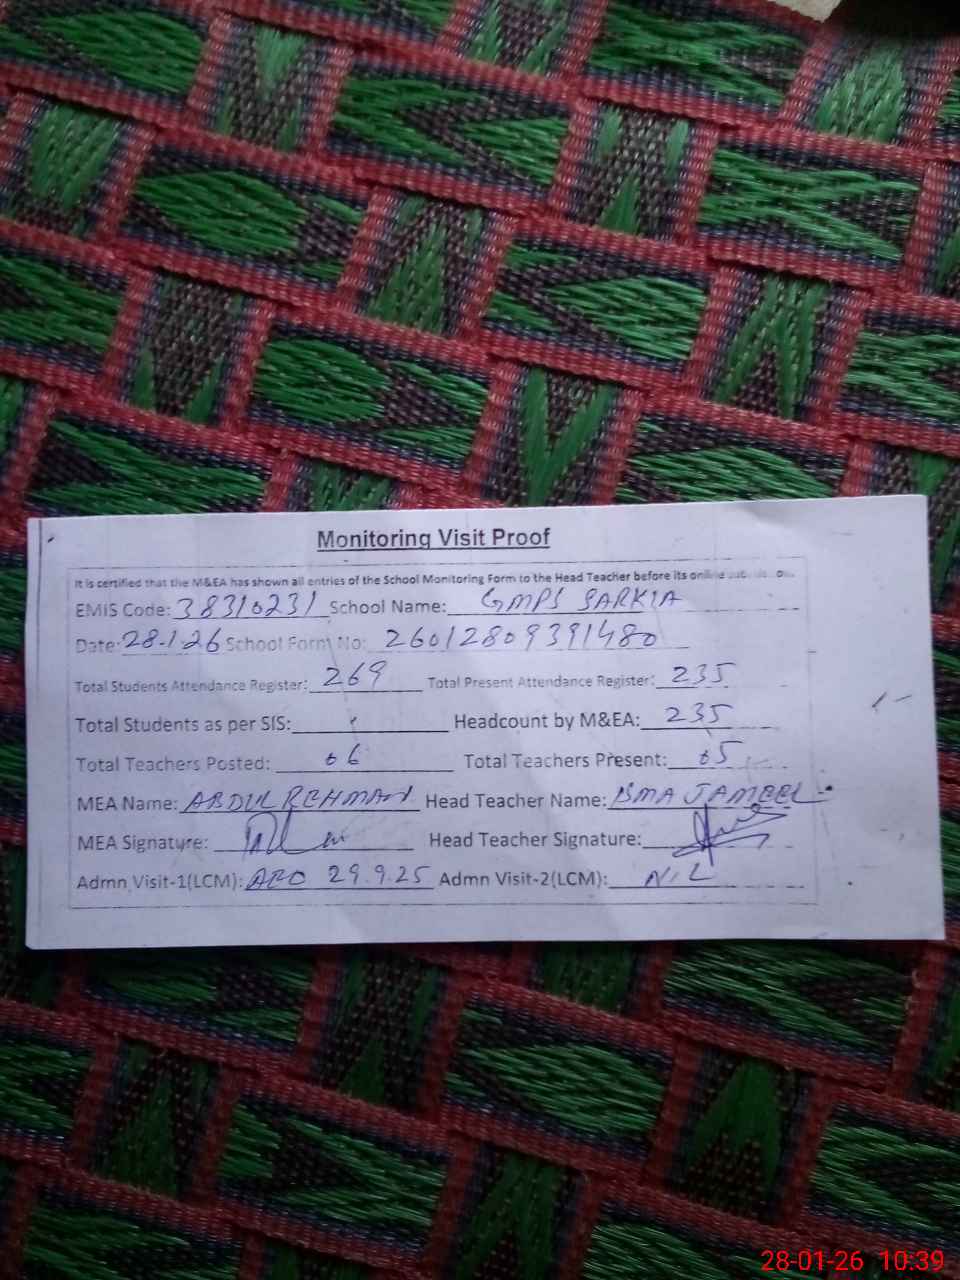 Monitoring Visit Proof
It is certified that the M&EA has shown all entries of the School Monitoring Form to the Head Teacher before its online
EMIS Code: 38310231 School Name: GMPS SARKIA
Date: 28.1.26 School Form No: 26012809391480
Total Students Attendance Register: 269 Total Present Attendance Register: 235
Total Students as per SIS: Headcount by M&EA: 235
Total Teachers Posted: 06 Total Teachers Present: 05
MEA Name: ABDUL REHMAN Head Teacher Name: JAMEEL
MEA Signature: Head Teacher Signature:
Admn Visit-1(LCM): 29.9.25 Admn Visit-2(LCM): NIL
28-01-26 10:39